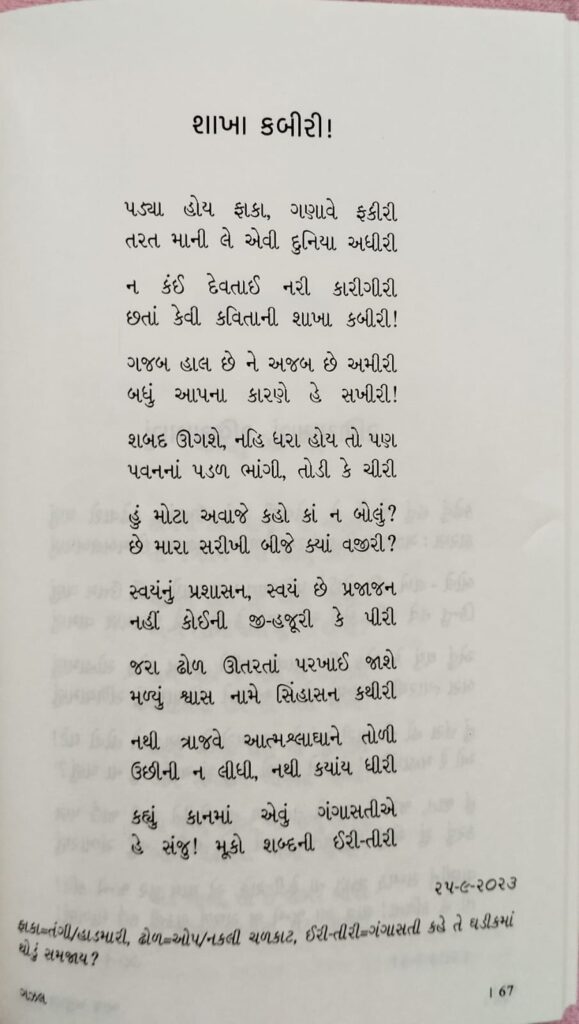 શાખા કબીરી!
પડ્યા હોય ફાકા, ગણાવે ફકીરી
તરત માની લે એવી દુનિયા અધીરી
ન કંઈ દેવતાઈ નરી કારીગીરી
છતાં કેવી કવિતાની શાખા કબીરી!
ગજબ હાલ છે ને અજબ છે અમીરી
બધું આપના કારણે હે સખીરી!
શબદ ઊગશે, નહિ ધરા હોય તો પણ
પવનનાં પડળ ભાંગી, તોડી કે ચીરી
હું મોટા અવાજે કહો કાં ન બોલું?
છે મારા સરીખી બીજે ક્યાં વજીરી?
સ્વયંનું પ્રશાસન, સ્વયં છે પ્રજાજન
નહીં કોઈની જી-હજૂરી કે પીરી
જરા ઢોળ ઊતરતાં પરખાઈ જાશે
મળ્યું શ્વાસ નામે સિંહાસન કથીરી
નથી ત્રાજવે આત્મશ્લાઘાને તોળી
ઉછીની ન લીધી, નથી કયાંય ધીરી
કહ્યું કાનમાં એવું ગંગાસતીએ
હે સંજુ! મૂકો શબ્દની ઈરી-તીરી
૨૫-૯-૨૦૨૩
ફાકા=તંગી/હાડમારી, ઢોળ=ઓપ/નકલી ચળકાટ, ઈરી-તીરી=ગંગાસતી કહે તે ઘડીકમાં
થોડું સમજાય?
ગઝલ | 67